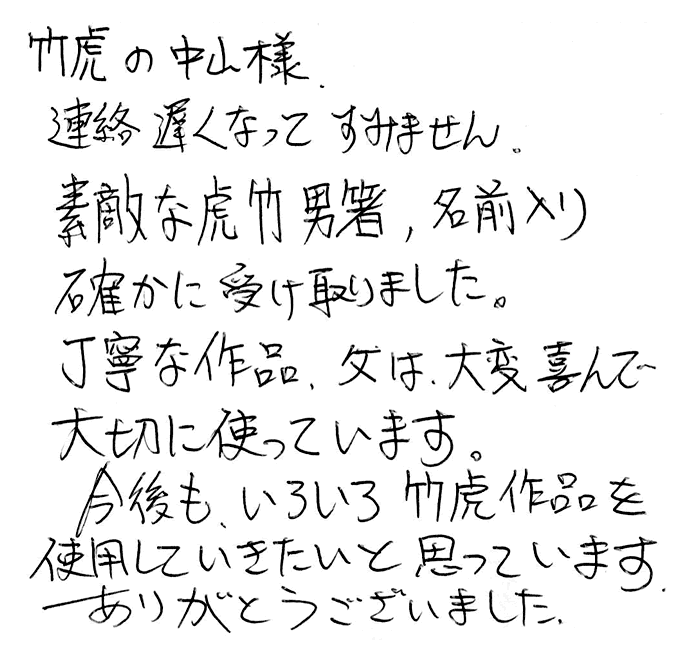 竹虎の中山様.
連絡遅くなってすみません。
素敵な虎竹男箸, 名前入り
確かに受け取りました。
丁寧な作品、父は、大変喜んで
大切に使っています。
今後も、いろいろ竹虎作品を
使用していきたいと思っています.
ありがとうございました.